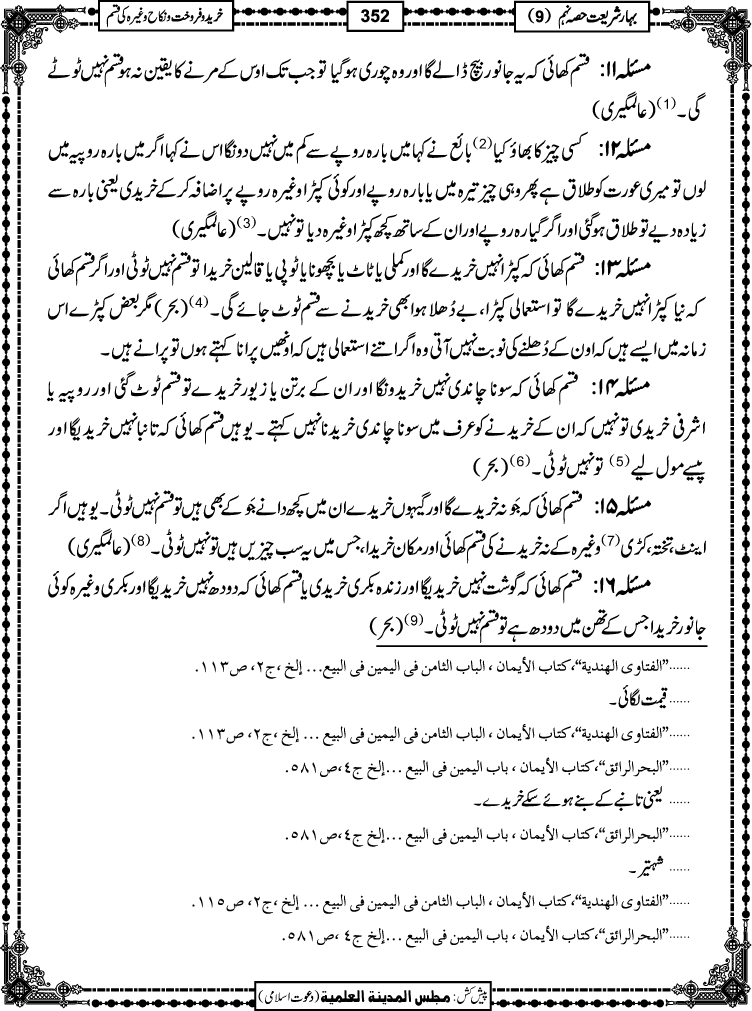 بہار شریعت حصہ نہم (9)
352
خرید و فروخت و نکاح وغیرہ کی قسم
مسئلہ ۱۱: قسم کھائی کہ یہ جانور بیچ ڈالے گا اور وہ چوری ہوگیا تو جب تک اوس کے مرنے کا یقین نہ ہو قسم نہیں ٹوٹے
گی۔(1) (عالمگیری)
مسئلہ ۱۲: کسی چیز کا بھاؤ کیا(2) بائع نے کہا میں بارہ روپے سے کم میں نہیں دونگا اس نے کہا اگر میں بارہ روپیہ میں
لوں تو میری عورت کو طلاق ہے پھر وہی چیز تیرہ میں یا بارہ روپے اور کوئی کپڑا وغیرہ روپے پر اضافہ کرکے خریدی یعنی بارہ سے
زیادہ دیے تو طلاق ہوگئی اور اگر گیارہ روپے اور ان کے ساتھ کچھ کپڑا وغیرہ دیا تو نہیں۔(3) (عالمگیری)
مسئلہ ۱۳: قسم کھائی کہ کپڑا نہیں خریدے گا اور کملی یا ٹاٹ یا بچھونا یا ٹوپی یا قالین خریدا تو قسم نہیں ٹوٹی اور اگر قسم کھائی
کہ نیا کپڑا نہیں خریدے گا تو استعمالی کپڑا، بے دُھلا ہوا بھی خریدنے سے قسم ٹوٹ جائے گی۔(4) (بحر) مگر بعض کپڑے اس
زمانہ میں ایسے ہیں کہ اون کے دُھلنے کی نوبت نہیں آتی وہ اگر اتنے استعمالی ہیں کہ اونھیں پرانا کہتے ہوں تو پرانے ہیں۔
مسئلہ ۱۴: قسم کھائی کہ سونا چاندی نہیں خریدونگا اور ان کے برتن یا زیور خریدے تو قسم ٹوٹ گئی اور روپیہ یا
اشرفی خریدی تو نہیں کہ ان کے خریدنے کو عرف میں سونا چاندی خریدنا نہیں کہتے۔ یوہیں قسم کھائی کہ تانبا نہیں خریدیگا اور
پیسے مول لیے(5) تو نہیں ٹوٹی۔(6) (بحر)
مسئلہ ۱۵: قسم کھائی کہ جَو نہ خریدے گا اور گیہوں خریدے ان میں کچھ دانے جَو کے بھی ہیں تو قسم نہیں ٹوٹی۔ یوہیں اگر
اینٹ، تختہ، کڑی(7) وغیرہ کے نہ خریدنے کی قسم کھائی اور مکان خریدا، جس میں یہ سب چیزیں ہیں تو نہیں ٹوٹی۔(8) (عالمگیری)
مسئلہ ۱۶: قسم کھائی کہ گوشت نہیں خریدیگا اور زندہ بکری خریدی یا قسم کھائی کہ دودھ نہیں خریدیگا اور بکری وغیرہ کوئی
جانور خریدا جس کے تھن میں دودھ ہے تو قسم نہیں ٹوٹی۔(9) (بحر)
......"الفتاوی الھندیة"، کتاب الأیمان ، الباب الثامن فی الیمین فی البیع... إلخ ،ج۲، ص۱۱۳.
...... قیمت لگائی۔
......"الفتاوی الھندیة"، کتاب الأیمان ، الباب الثامن فی الیمین فی البیع ... إلخ ،ج۲، ص۱۱۳.
......"البحرالرائق"،کتاب الأیمان ، باب الیمین فی البیع ...إلخ ج٤،ص۵۸۱.
...... یعنی تانبے کے بنے ہوئے سکے خریدے۔
......"البحرالرائق"،کتاب الأیمان ، باب الیمین فی البیع ...إلخ ج٤،ص۵۸۱.
...... شہتیر۔
......"الفتاوی الھندیة"، کتاب الأیمان، الباب الثامن فی الیمین فی البیع ... إلخ ،ج۲، ص۱۱۵.
......"البحرالرائق"،کتاب الأیمان ، باب الیمین فی البیع ...إلخ ج٤ ،ص۵۸۱.
پیش کش: مجلس المدینة العلمیة (دعوت اسلامی)